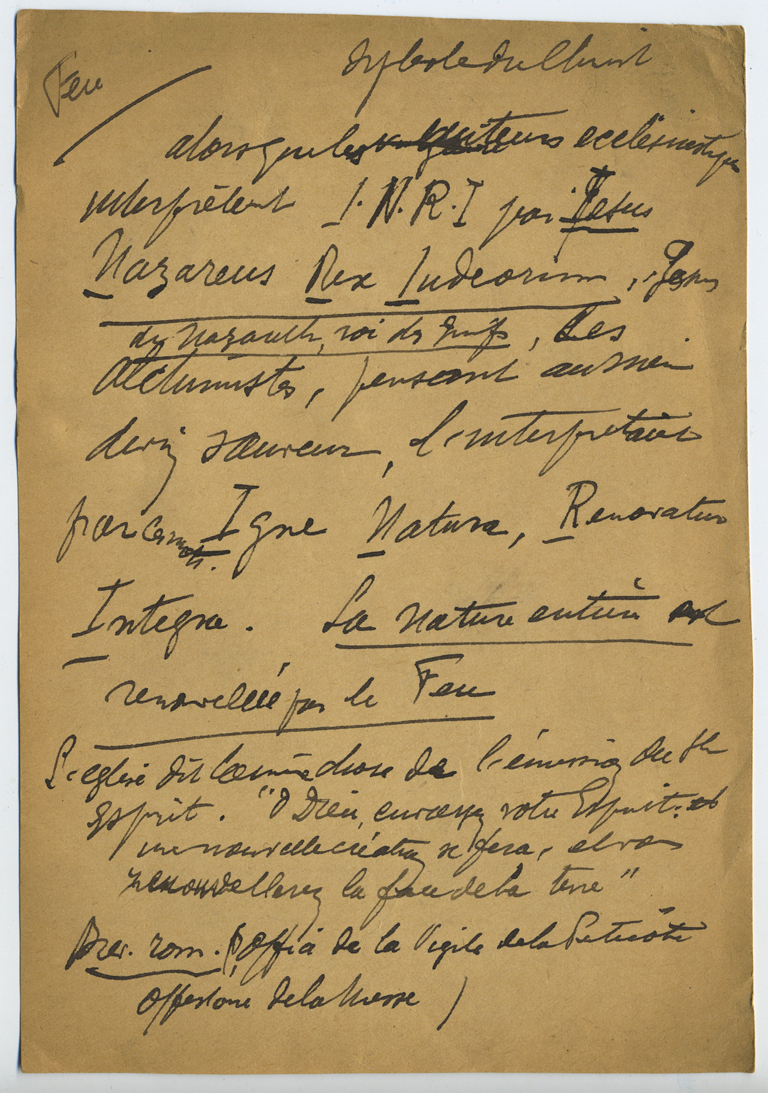 Feu
Symbole du Christ
alors que les auteurs ecclésiastiques
interprètent I.N.R.I par Jesus
Nazareus Rex Iudeorum, "Jesus
de Nazareth, roi des Juifs, Les
Alchimistes, pensant au même
divin sauveur, l'interprétaient
par ces mots. Igne Natura, Renovatur
Integra. La nature entière est
renouvellée par le Feu
L'église dit la même chose de l'émission du St
Esprit. "O Dieu, envoyez votre Esprit: et
une nouvelle création se fera, et vous
renouvellerez la face de la terre"
Brev. rom. (Office de la Vigile de la Pentecôte
de la Messe)